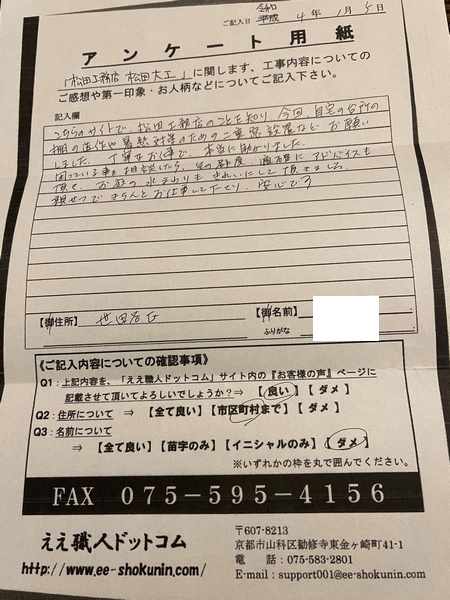 令和
ご記入日 平成 4年 1月 5日
アンケート用紙
「松田工務店 松田大工」に関します、工事内容についての
ご感想や第一印象・お人柄などについてご記入下さい。
記入欄
こちらのサイトで、松田工務店のことを知り、今回、自宅の台所の
棚の造作や暑熱対策のための二重窓設置などお願い
しました。丁寧なお仕事で、本当に助かりました。
困っている事を相談したら、その都度、適確にアドバイスも
頂き、お庭の水まわりもきれいにして頂きました。
親せつできちんとお仕事して下さり、安心です
【御住所】 世田谷区 【御名前】
ふりがな
《ご記入内容についての確認事項》
Q1:上記内容を、「ええ職人ドットコム」サイト内の『お客様の声』ページに
記載させて頂いてよろしいでしょうか?⇒ 【良い】【ダメ】
Q2:住所について ⇒ 【全て良い】【市区町村まで】【ダメ】
Q3:名前について
⇒ 【全て良い】【苗字のみ】【イニシャルのみ】【ダメ】
※いずれかの枠を丸で囲んでください。
FAX 075-595-4156
ええ職人ドットコム
http://www.ee-shokunin.com/
〒607-8213
京都市山科区勧修寺東金ヶ崎町41-1
電 話:075-583-2801
E-mail:support001@ee-shokunin.com